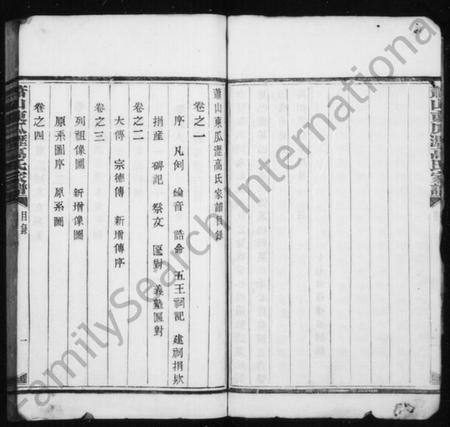 蕭山東瓜瀝高氏家譜目錄
卷之一
序 凡例 綸音 誥命 五王祠記 建祠捐欵
捐產 碑記 祭文 匾對 義塾匾對
卷之二
大傳 宗德傳 新增傳序
卷之三
列祖像圖 新增像圖
原系圖序 原系圖
卷之四
蕭山東瓜瀝高氏家譜
目錄
一
蕭山東瓜瀝高氏家譜
FamilySearch International